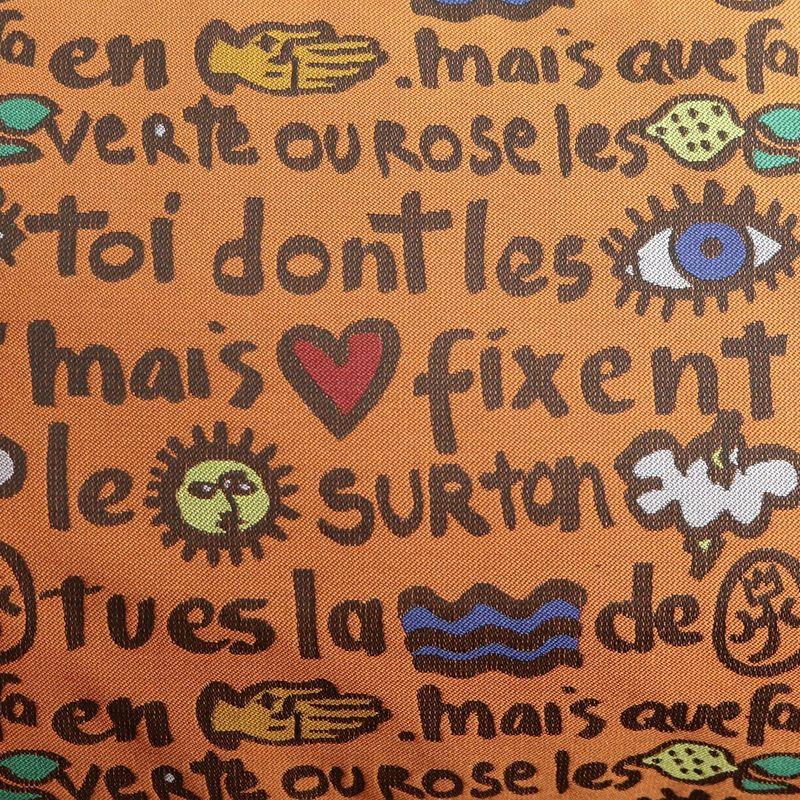 fa en . mais que fa
verte ou rose les
toi dont les
mais fixent
le sur ton
tu es la de
fa en . mais que fa
verte ou rose les